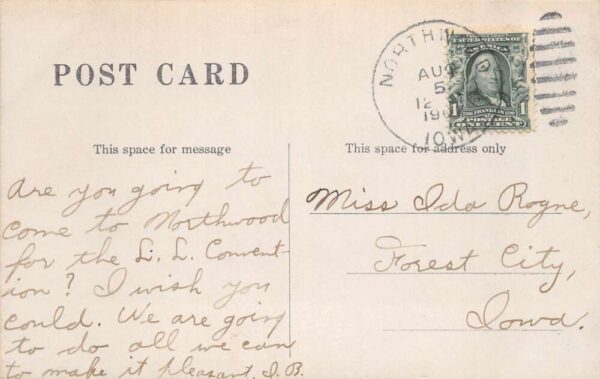 POST CARD
UNITED STATES OF
AMERICA
AUG
5
12
190
IOWA
1 1706 FRANKLIN 1790 1
POSTAGE
ONE CENT
This space for message
Are you going to
come to Northwood
for the L. L. Convent-
ion? I wish you
could. We are going
to do all we can
to make it pleasant. I. B.
This space for address only
Miss Ida Rogne,
Forest City,
Iowa.